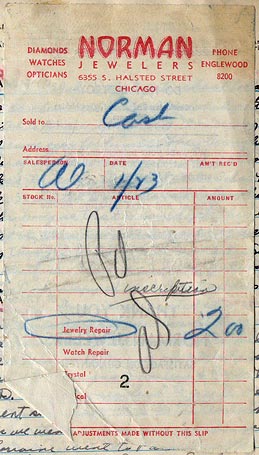 DIAMONDS NORMAN PHONE
WATCHES JEWELERS ENGLEWOOD
OPTICIANS 6355 S. HALSTED STREET 8200
CHICAGO
Sold to Cash
Address
SALESPERSON DATE AM'T REC'D
1/23
STOCK No. ARTICLE AMOUNT
Pd
inscription
Jewelry Repair 2 00
Watch Repair
Crystal
2
ADJUSTMENTS MADE WITHOUT THIS SLIP